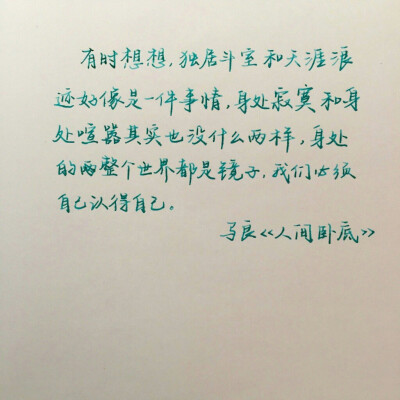 有时想想，独居斗室和天涯浪
迹好像是一件事情，身处寂寞和身
处喧嚣其实也没什么两样，身处
的两整个世界都是镜子，我们必须
自己认得自己。
马良<<人间卧底>>